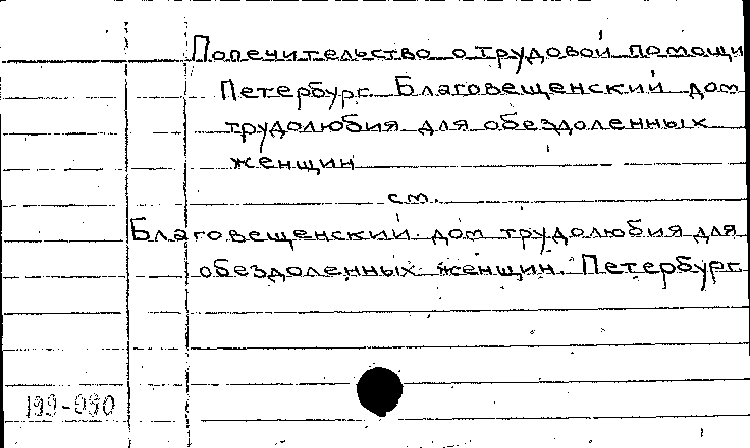 Попечительство о трудовой помощи
Петербург. Благовещенский дом
трудолюбия для обездоленных
женщин
см.
Благовещенский дом трудолюбия для
обездоленных женщин. Петербург
199-090